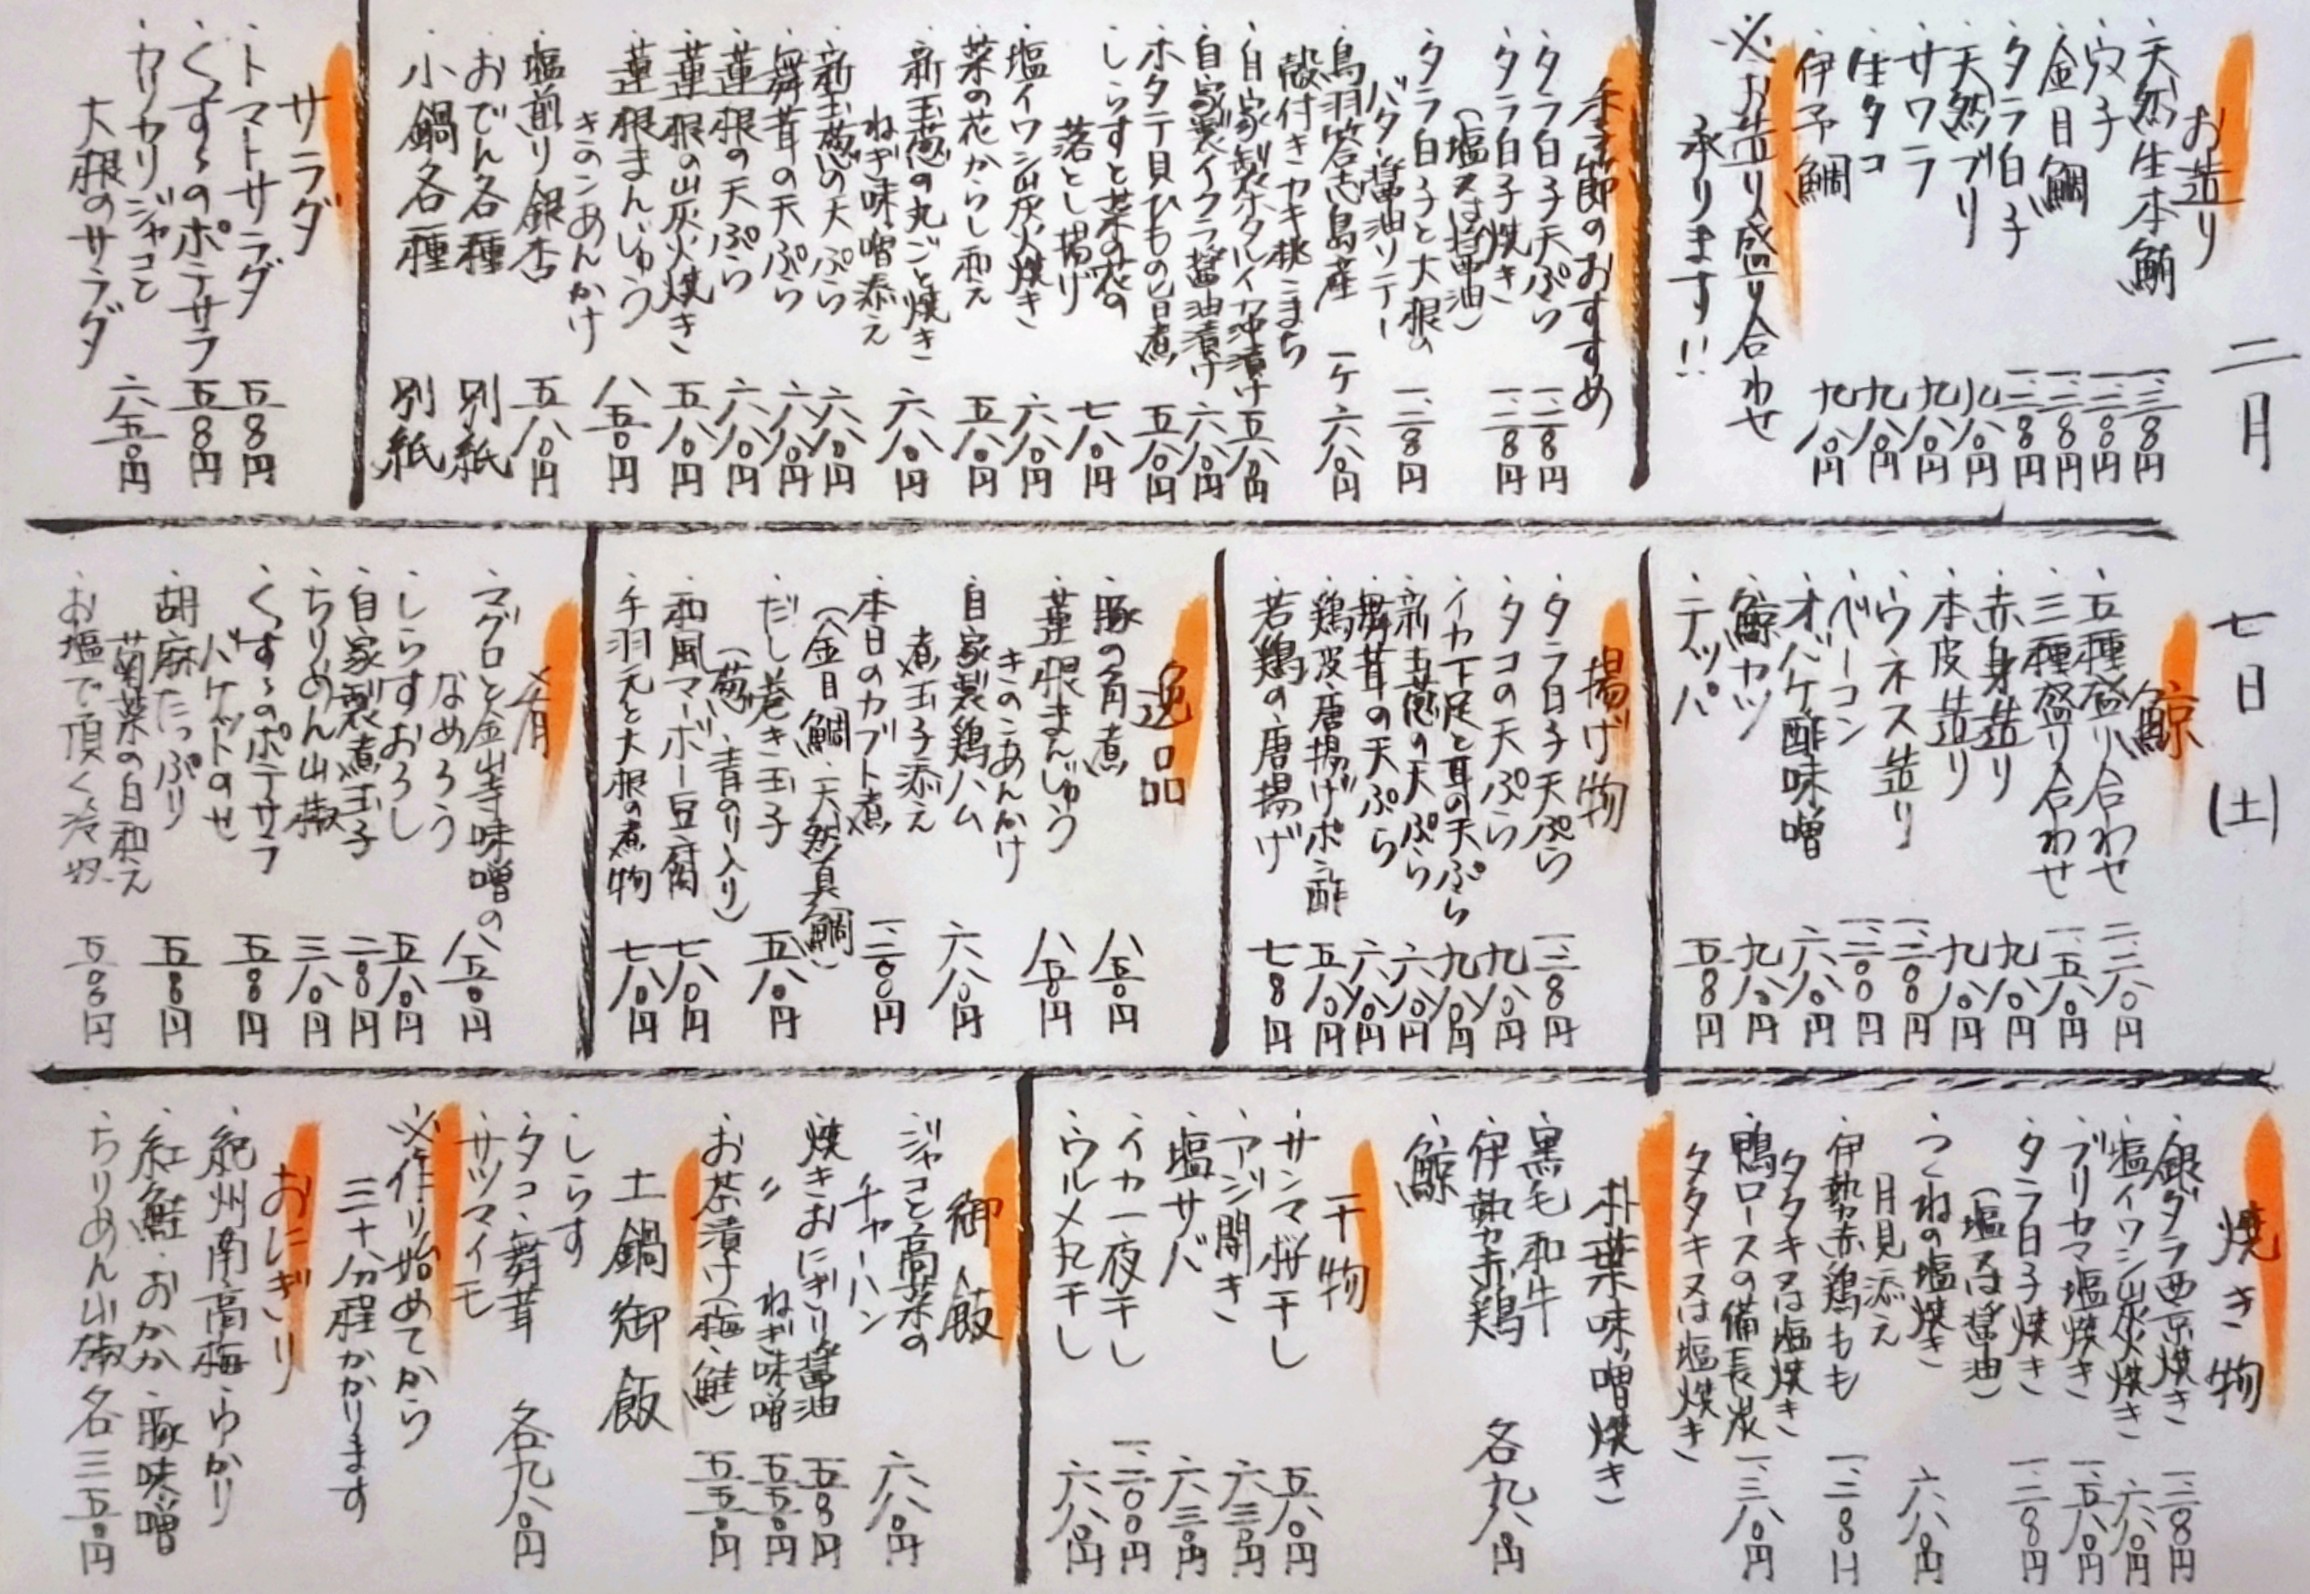 二月 七日(土)
お造り
・天然生本鮪 一、三〇〇円
・穴子 一、三〇〇円
・金目鯛 一、三〇〇円
・タラ白子 一、三〇〇円
・天然ブリ 九八〇円
・サワラ 九八〇円
・生タコ 九八〇円
・伊予鯛 九八〇円
※お造り盛り合わせ
承ります!!
季節のおすすめ
・タラ白子天ぷら 一、三〇〇円
・タラ白子焼き
(塩又は醤油) 一、三〇〇円
・タラ白子と大根の
バター醤油ソテー 一、三〇〇円
・鳥羽答志島産
殻付きカキ桃こまち 一ケ 六八〇円
・自家製ホタルイカ沖漬け 五八〇円
・自家製イクラ醤油漬け 六八〇円
・ホタテ貝ひもの旨煮 五八〇円
・しらすと菜の花の
落とし揚げ 七八〇円
・塩イワシ炭火焼き 六八〇円
・菜の花からし和え 五八〇円
・新玉葱の丸ごと焼き
ねぎ味噌添え 六八〇円
・新玉葱の天ぷら 六八〇円
・舞茸の天ぷら 六八〇円
・蓮根の天ぷら 六八〇円
・蓮根の炭火焼き 五八〇円
・蓮根まんじゅう
きのこあんかけ 八五〇円
・塩煎り銀杏 五八〇円
・おでん各種 別紙
・小鍋各種 別紙
サラダ
・トマトサラダ 五〇〇円
・くすくすのポテサラ 五〇〇円
・カリカリジャコと
大根のサラダ 六五〇円
鯨
・五種盛り合わせ 二、二八〇円
・三種盛り合わせ 一、五八〇円
・赤身造り 九八〇円
・本皮造り 九八〇円
・ウネス造り 一、二〇〇円
・ベーコン 一、二〇〇円
・オバケ酢味噌 六八〇円
・鯨カツ 九八〇円
・テッパ 五〇〇円
揚げ物
・タラ白子天ぷら 一、三〇〇円
・タコの天ぷら 九八〇円
・イカ下足と耳の天ぷら 九八〇円
・新玉葱の天ぷら 六八〇円
・舞茸の天ぷら 六八〇円
・鶏皮唐揚げポン酢 五八〇円
・若鶏の唐揚げ 七〇〇円
逸品
・豚の角煮 八五〇円
・蓮根まんじゅう
きのこあんかけ 八五〇円
・自家製鶏ハム
煮玉子添え 六八〇円
・本日のカブト煮
(金目鯛、天然真鯛) 一、二〇〇円
・だし巻き玉子
(葱、青のり入り) 五八〇円
・和風マーボー豆腐 七八〇円
・手羽元と大根の煮物 七八〇円
肴
・マグロと金山寺味噌の
なめろう 八五〇円
・しらすおろし 五八〇円
・自家製煮玉子 二〇〇円
・ちりめん山椒 三八〇円
・くすくすのポテサラ
バケットのせ 五〇〇円
・胡麻たっぷり
菊菜の白和え 五〇〇円
・お塩で頂く冷奴 五〇〇円
焼き物
・銀ダラ西京焼き 一、三〇〇円
・塩イワシ炭火焼き 六八〇円
・ブリカマ塩焼き 一、五八〇円
・タラ白子焼き
(塩又は醤油) 一、三〇〇円
・つくねの塩焼き
月見添え 六八〇円
・伊勢赤鶏もも
タタキ又は塩焼き 一、二〇〇円
・鴨ロースの備長炭
タタキ又は塩焼き 一、三八〇円
朴葉味噌焼き
・黒毛和牛
・伊勢赤鶏 各九八〇円
・鯨
干物
・サンマ桜干し 五八〇円
・アジ開き 六三〇円
・塩サバ 六三〇円
・イカ一夜干し 一、二〇〇円
・ウルメ丸干し 六八〇円
御飯
・ジャコと高菜の
チャーハン 六八〇円
・焼きおにぎり醤油 五〇〇円
・〃 ねぎ味噌 五五〇円
・お茶漬け(梅、鮭) 五五〇円
土鍋御飯
・しらす
・タコ・舞茸 各九八〇円
・サツマイモ
※作り始めてから
三十分程かかります
おにぎり
・紀州南高梅・ゆかり
・紅鮭・おかか・豚味噌
・ちりめん山椒 各三五〇円